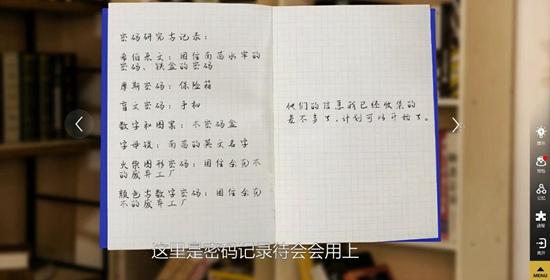 密码研究与记录:
希伯来文:困住南茜水牢的
密码、铁盒的密码
摩斯密码:保险箱
盲文密码:手机
数字和图案:木密码盒
字母锁:南茜的英文名字
火柴图形密码:困住余向木
的废弃工厂
颜色与数字密码:困住余向
木的废弃工厂
他们的信息我已经收集的
差不多了,计划可以开始了。
这里是密码记录待会会用上
提示
背包
记忆
进程
离开
MENU